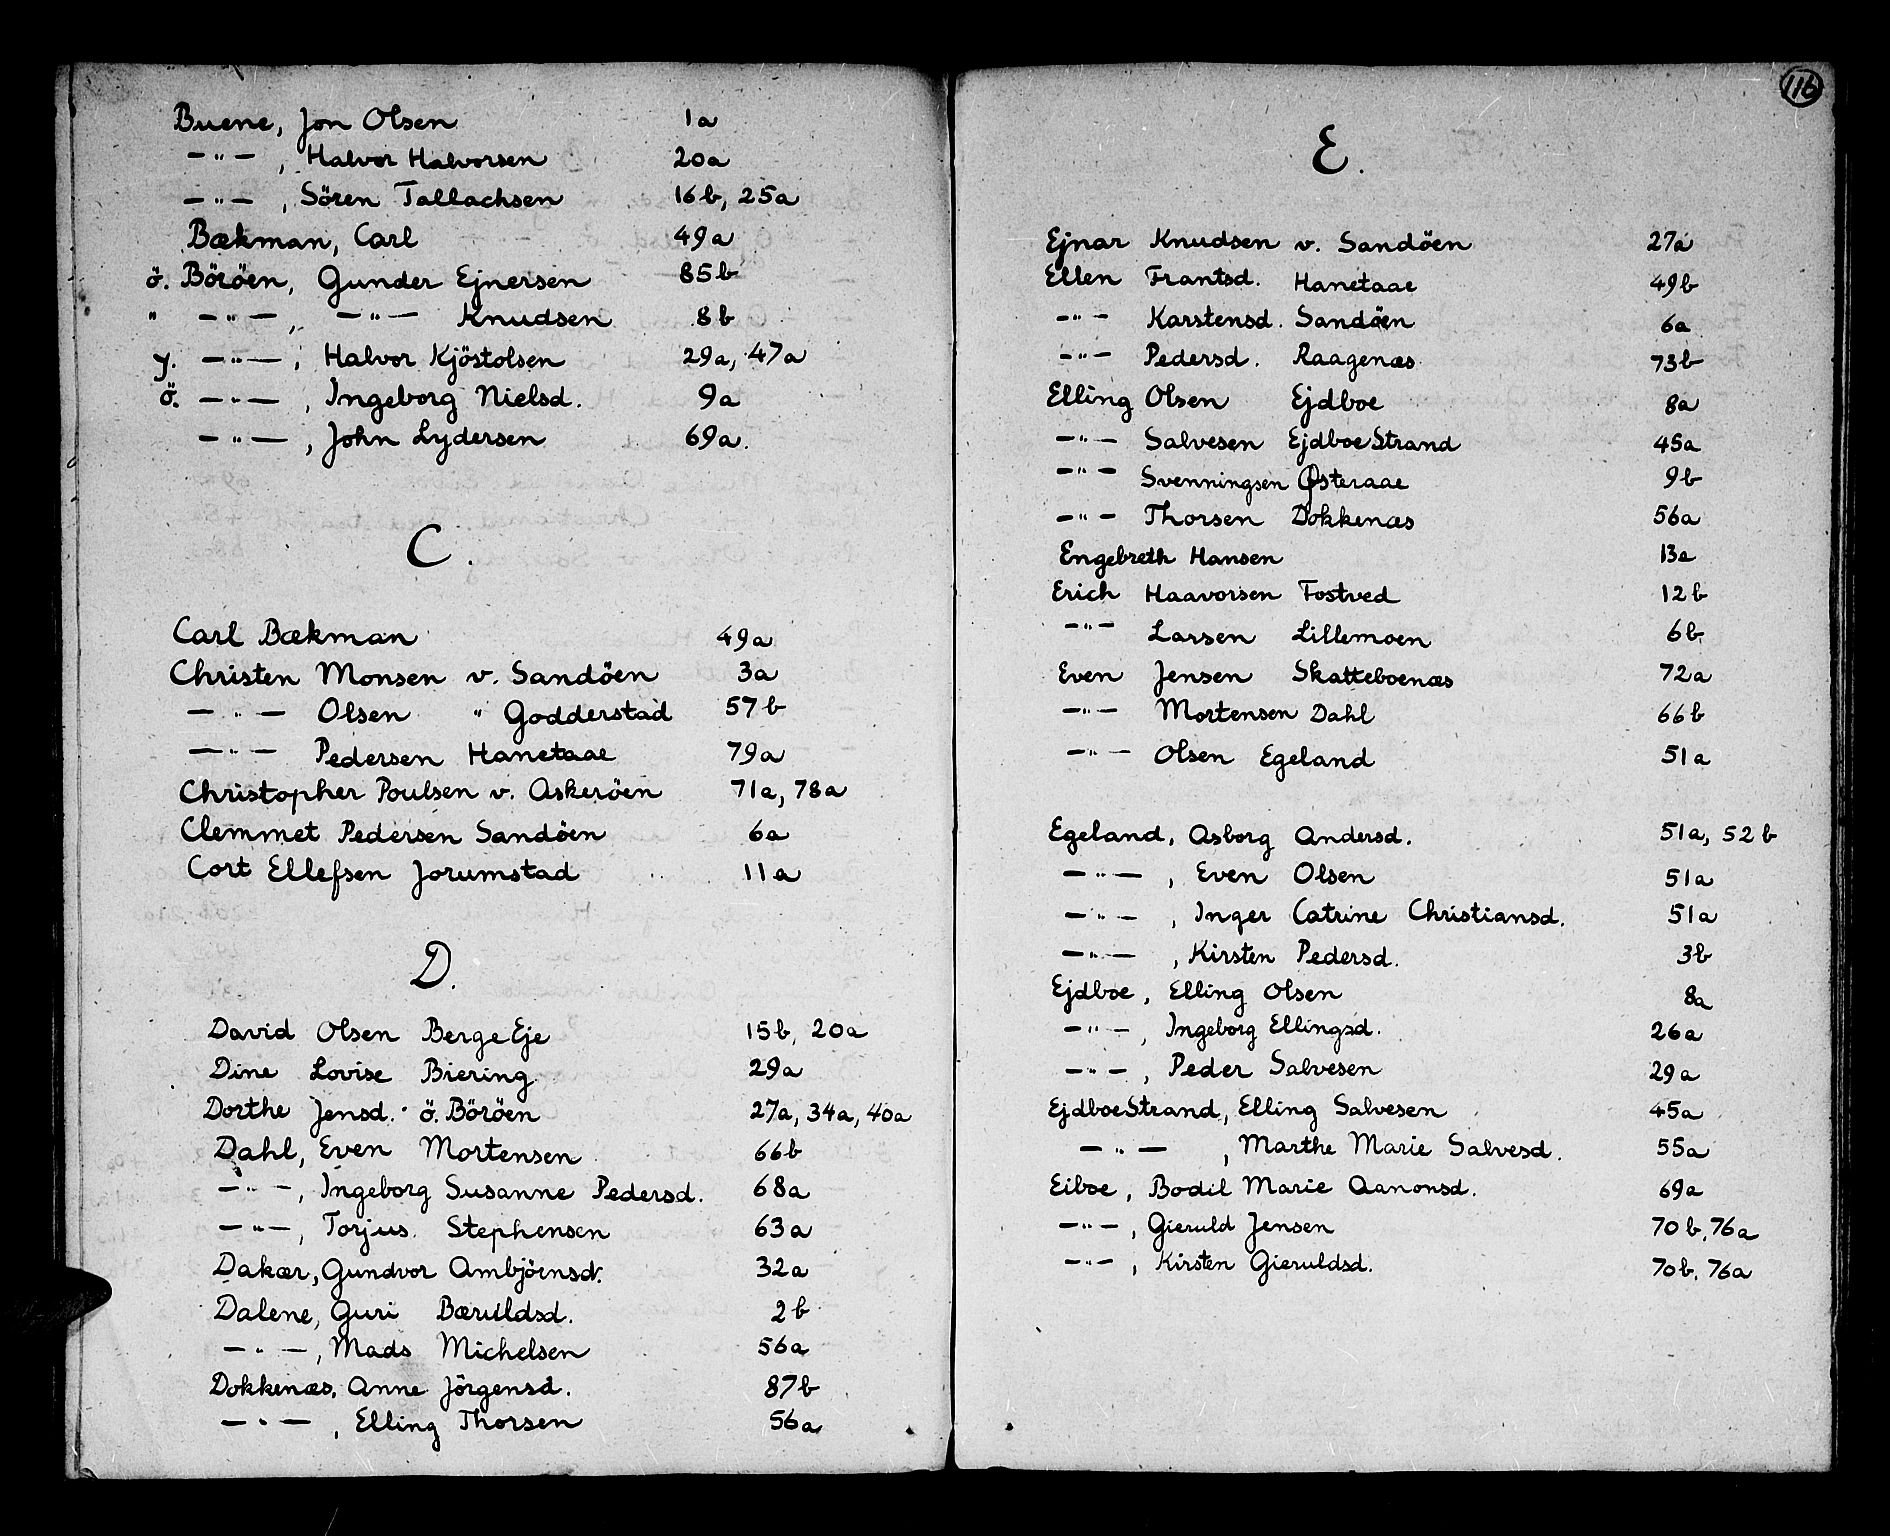 Buene, Jon Olsen 1a
—"— , Halvor Halvorsen 20a
—"— , Sören Tallachsen 16b, 25a
Bækman, Carl 49a
ö. Böröen, Gunder Ejnersen 85b
" —"—, —"— Knudsen 8b
y. —"—, Halvor Kjöstolsen 29a, 47a
ö. —"— , Ingeborg Nielsd. 9a
—"— , John Lydersen 69a.
C.
Carl Bækman 49a
Christen Monsen v. Sandöen 3a
—"— Olsen " Godderstad 57b
—"— Pedersen Hanetaae 79a
Christopher Poulsen v. Askeröen 71a, 78a
Clemmet Pedersen Sandöen 6a
Cort Ellefsen Jorumstad 11a
D.
David Olsen Berge Eje 15b, 20a
Dine Lovise Biering 29a
Dorthe Jensd. ö. Böröen 27a, 34a, 40a
Dahl, Even Mortensen 66b
—"—, Ingeborg Susanne Pedersd. 68a
—"—, Torjus. Stephensen 63a
Dakær, Gundvor Ambjörnsd. 32a
Dalene, Guri Bæruldsd. 2b
—"—, Mads Michelsen 56a
Dokkenæs, Anne Jörgensd. 87b
—"— , Elling Thorsen 56a
116
E.
Ejnar Knudsen v. Sandöen 27a
Ellen Frantsd. Hanetaae 49b
—"— Karstensd. Sandöen 6a
—"— Pedersd. Raagenæs 73b
Elling Olsen Ejdboe 8a
—"— Salvesen Ejdboe Strand 45a
—"— Svenningsen Østeraae 9b
—"— Thorsen Dokkenæs 56a
Engebreth Hansen 13a
Erich Haavorsen Fostved 12b
—"— Larsen Lillemoen 6b
Even Jensen Skatteboenæs 72a
—"— Mortensen Dahl 66b
—"— Olsen Egeland 51a
Egeland, Asborg Andersd. 51a, 52b
—"— , Even Olsen 51a
—"— , Inger Catrine Christiansd. 51a
—"— , Kirsten Pedersd. 3b
Ejdboe, Elling Olsen 8a
—"—, Ingeborg Ellingsd. 26a
—"—, Peder Salvesen 29a
Ejdboe Strand, Elling Salvesen 45a
—"— , Marthe Marie Salvesd. 55a
Eiboe, Bodil Marie Aanonsd. 69a
—"—, Gieruld Jensen 70b, 76a
—"—, Kirsten Gieruldsd. 70b, 76a